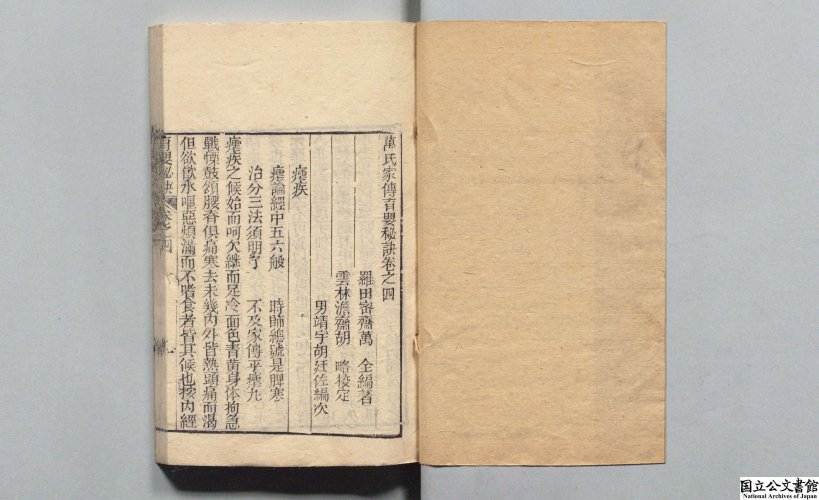 萬氏家傳育嬰秘訣卷之四
羅田密齋萬 全編著
雲林澹齋胡 略校定
男靖宇胡廷佐編次
瘧疾
瘧論經中五六般 時師總號是脾寒
治分三法須明了 不及家傳平瘧丸
瘧疾之候始而呵欠繼而足冷面色青黃身体拘急
戰慄鼓頷腰脊俱痛寒去未幾內外皆熱頭痛而渴
但欲飲水嘔惡煩滿而不嗜食者皆其候也按內經
育嬰秘訣 卷之四 一
国立公文書館
National Archives of Japan